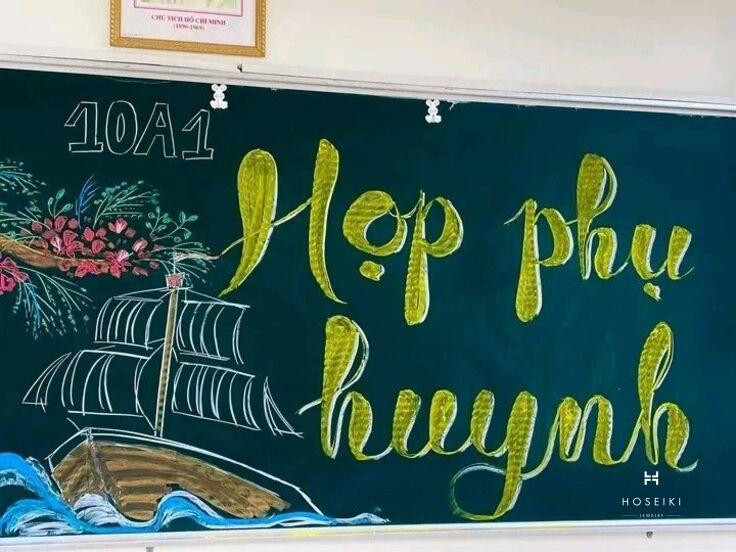 CHỦ TỊCH HỒ CHÍ MINH
(1890-1969)
10A1
Họp phụ
huynh
HOSEIKI
JEWELRY